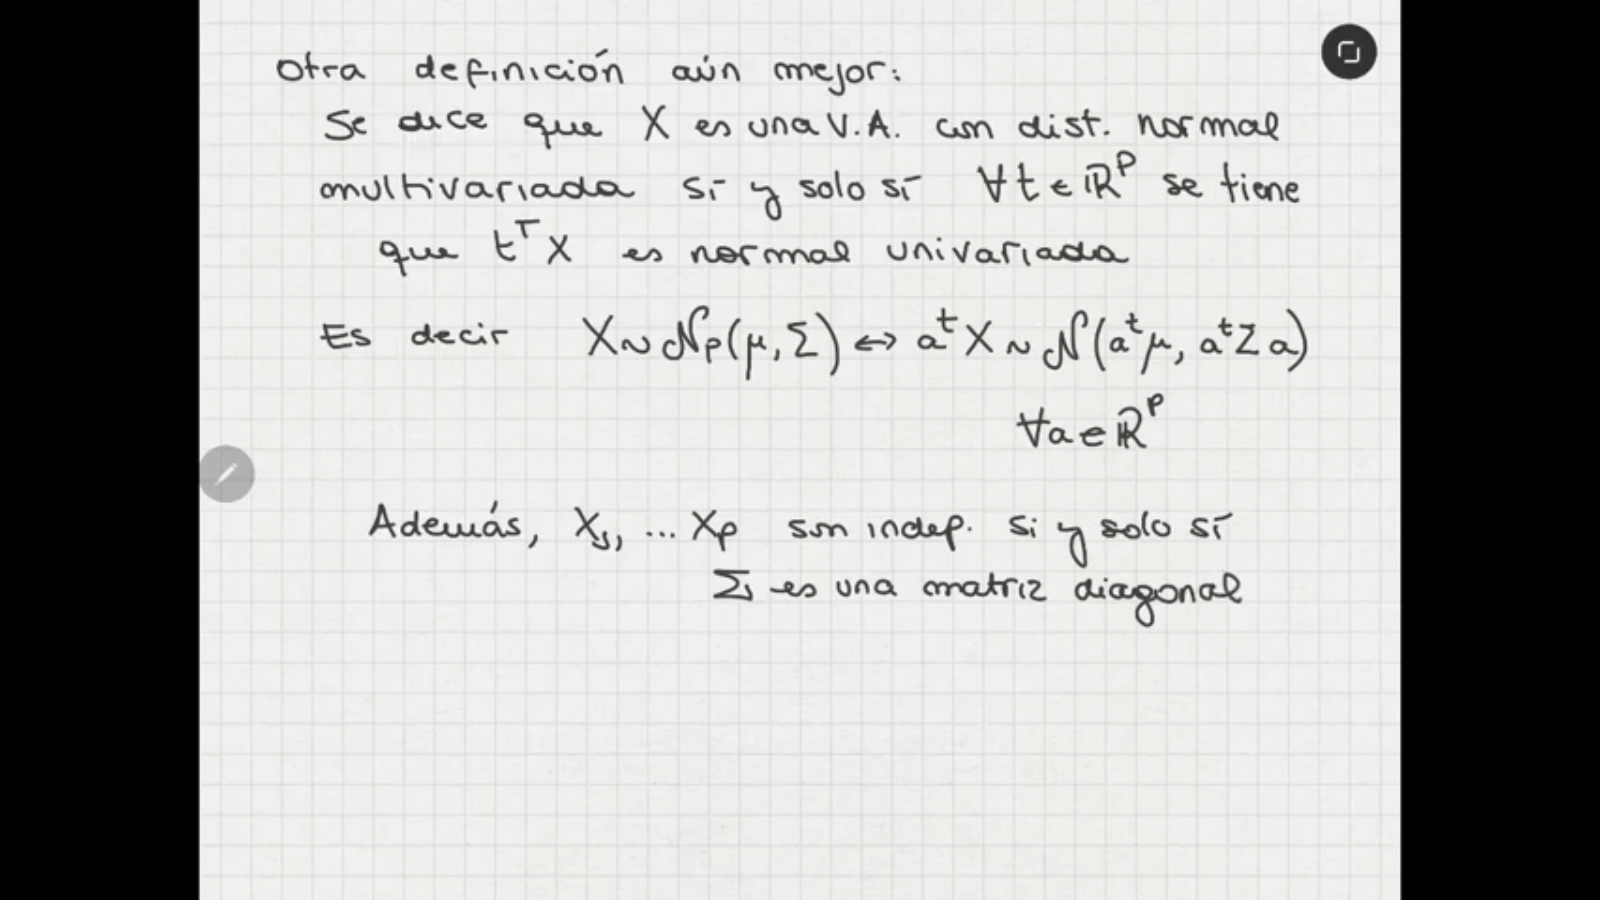 Otra definición aún mejor:
Se dice que X es una V.A. con dist. normal
multivariada sí y solo sí ∀t ∈ ℝᵖ se tiene
que tᵀX es normal univariada
Es decir X ~ 𝒩ₚ(μ, Σ) ↔ aᵗX ~ 𝒩(aᵗμ, aᵗΣa)
∀a ∈ ℝᵖ
Además, X₁, ... Xₚ son indep. si y solo sí
Σ es una matriz diagonal